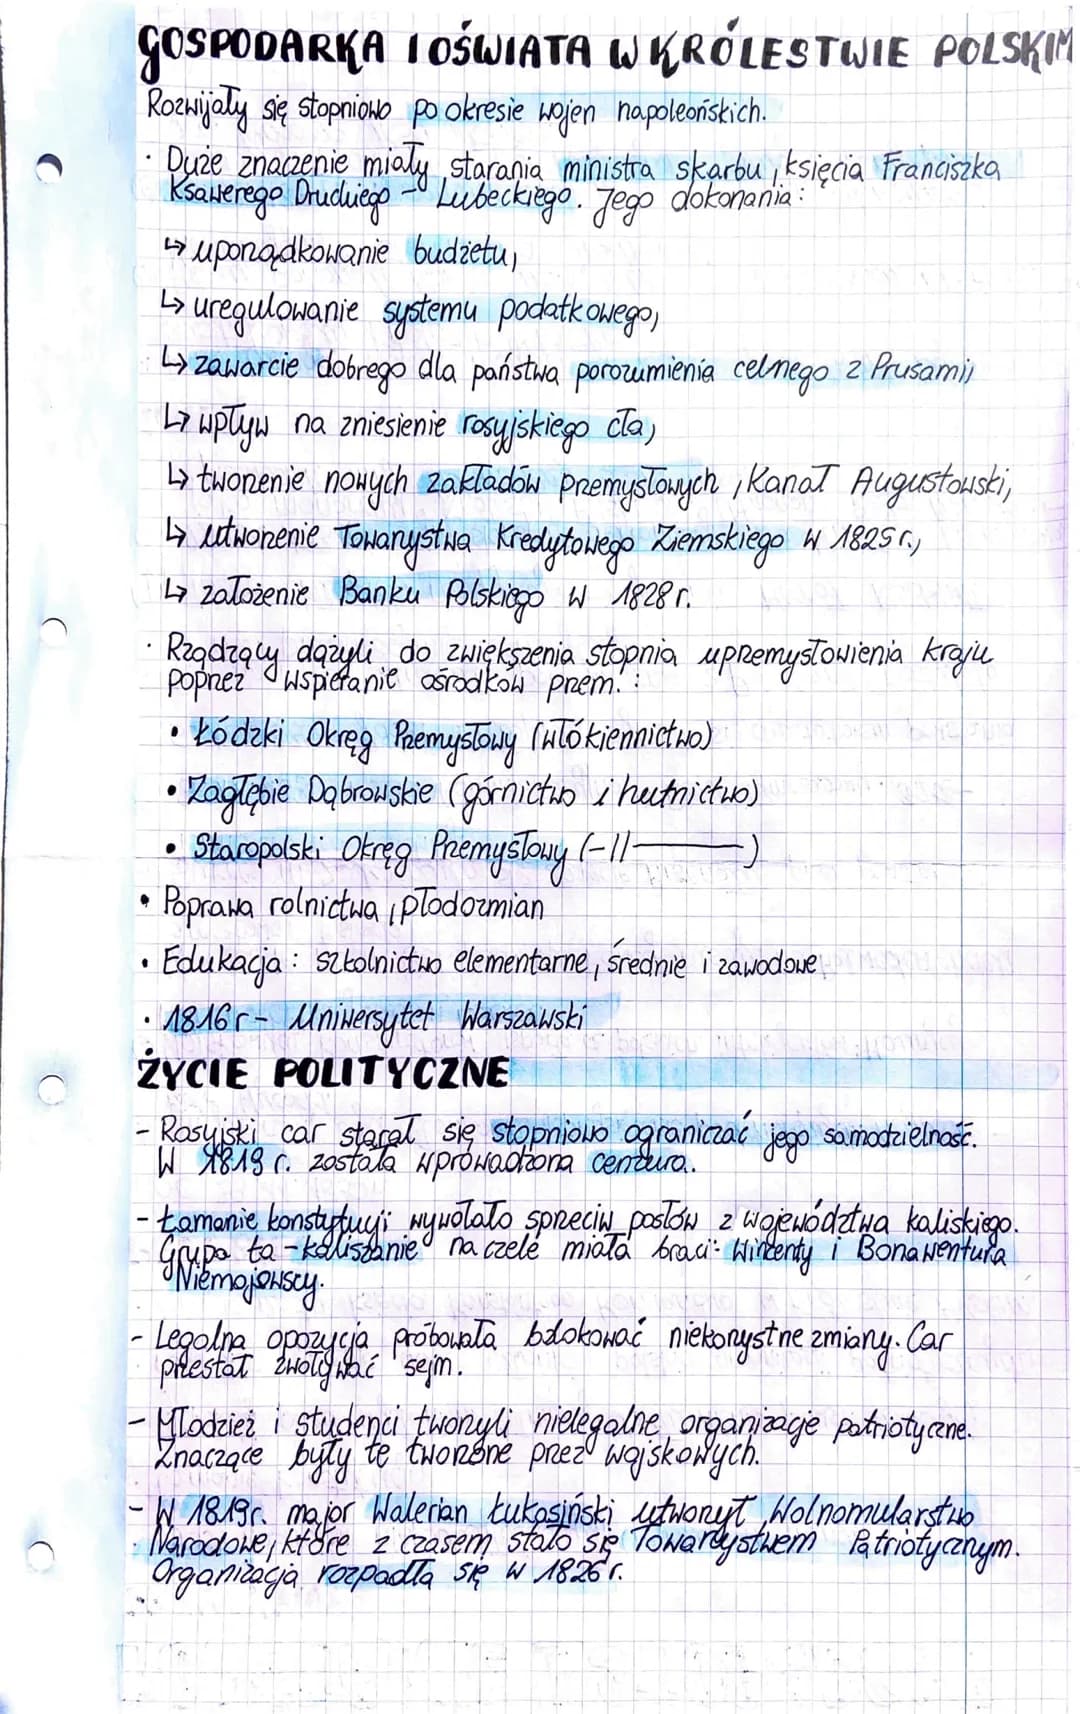 GOSPODARKA I OŚWIATA W KRÓLESTWIE POLSKIM
Rozwijały się stopniowo po okresie wojen napoleońskich.
· Duże znaczenie miały starania ministra skarbu, księcia Franciszka
Ksawerego Druckiego - Lubeckiego. Jego dokonania:
↳ uporządkowanie budżetu,
↳ uregulowanie systemu podatkowego,
↳ zawarcie dobrego dla państwa porozumienia celnego z Prusami,
↳ wpływ na zniesienie rosyjskiego cła,
↳ tworzenie nowych zakładów przemysłowych, Kanał Augustowski,
↳ utworzenie Towarzystwa Kredytowego Ziemskiego w 1825 r.,
↳ założenie Banku Polskiego w 1828 r.
· Rządzący dążyli do zwiększenia stopnia uprzemysłowienia kraju
poprzez wspieranie ośrodków przem. :
• Łódzki Okręg Przemysłowy (włókiennictwo)
• Zagłębie Dąbrowskie (górnictwo i hutnictwo)
• Staropolski Okręg Przemysłowy (-||-)
• Poprawa rolnictwa, płodozmian
• Edukacja: szkolnictwo elementarne, średnie i zawodowe
· 1816r - Uniwersytet Warszawski
ŻYCIE POLITYCZNE
- Rosyjski car starał się stopniowo ograniczać jego samodzielność.
W 1819 r. została wprowadzona cenzura.
- Łamanie konstytucji wywołało sprzeciw posłów z województwa kaliskiego.
Grupa ta - kaliszanie na czele miała braci: Wincenty i Bonawentura
Niemojowscy.
- Legalna opozycja próbowała blokować niekorzystne zmiany. Car
przestał zwoływać sejm.
- Młodzież i studenci tworzyli nielegalne organizacje patriotyczne.
Znaczące były te tworzone przez wojskowych.
- W 1819r. major Walerian Łukasiński utworzył Wolnomularstwo
Narodowe, które z czasem stało się Towarzystwem Patriotycznym.
Organizacja rozpadła się w 1826 r.